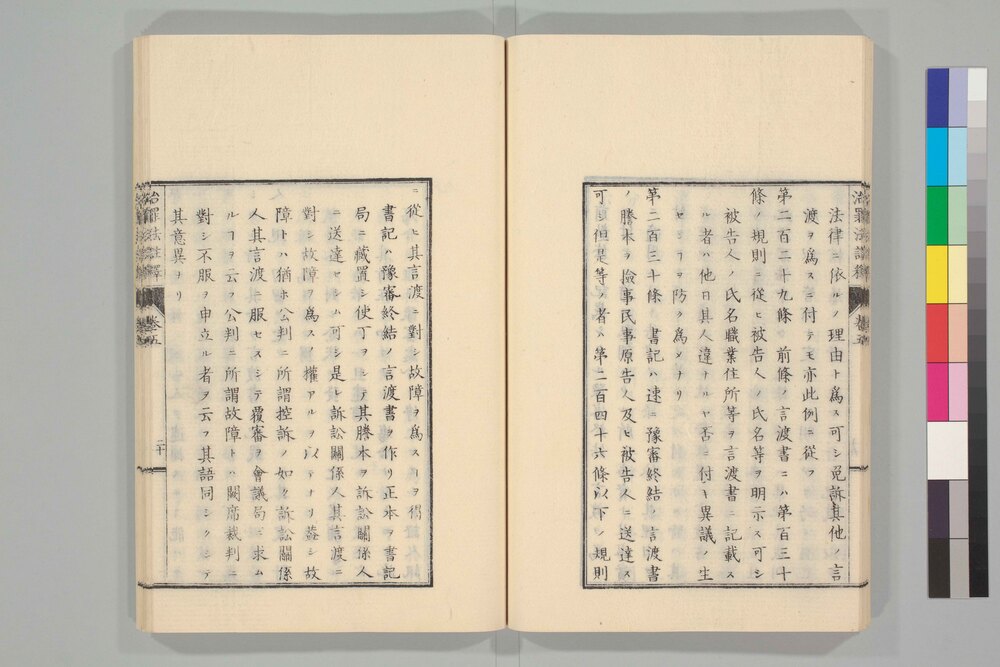 治罪法註釋 卷五
法律ニ依ルノ理由ト爲ス可シ免訴其他ノ言
渡ヲ爲スニ付テモ亦此例ニ從フ
第二百二十九條 前條ノ言渡書ニハ第百三十
條ノ規則ニ從ヒ被告人ノ氏名等ヲ明示ス可シ
被告人ノ氏名職業住所等ヲ言渡書ニ記載ス
ル者ハ他日其人違ナルヤ否ニ付キ異議ノ生
セシヿヲ防ク爲メナリ
第二百三十條 書記ハ速ニ豫審終結ノ言渡書
ノ謄本ヲ撿事民事原告人及ヒ被告人ニ送達ス
可シ但是等ノ者ハ第二百四十六條以下ノ規則
ニ從ヒ其言渡ニ對シ故障ヲ爲スヿヲ得
書記ハ豫審終結ノ言渡書ヲ作リ正本ヲ書記
局ニ藏置シ使丁ヲシテ其謄本ヲ訴訟關係人
ニ送達セシム可シ是レ訴訟關係人其言渡ニ
對シ故障ヲ爲スノ權アルヲ以テナリ蓋シ故
障トハ猶ホ公判ニ所謂控訴ノ如ク訴訟關係
人其言渡ニ服セスシテ覆審ヲ會議局ニ求ム
ルヿヲ云フ公判ニ所謂故障トハ闕席裁判ニ
對シ不服ヲ申立ル者ヲ云フ其語同シクシテ
其意異ナリ
治罪法註釋 卷五 二十